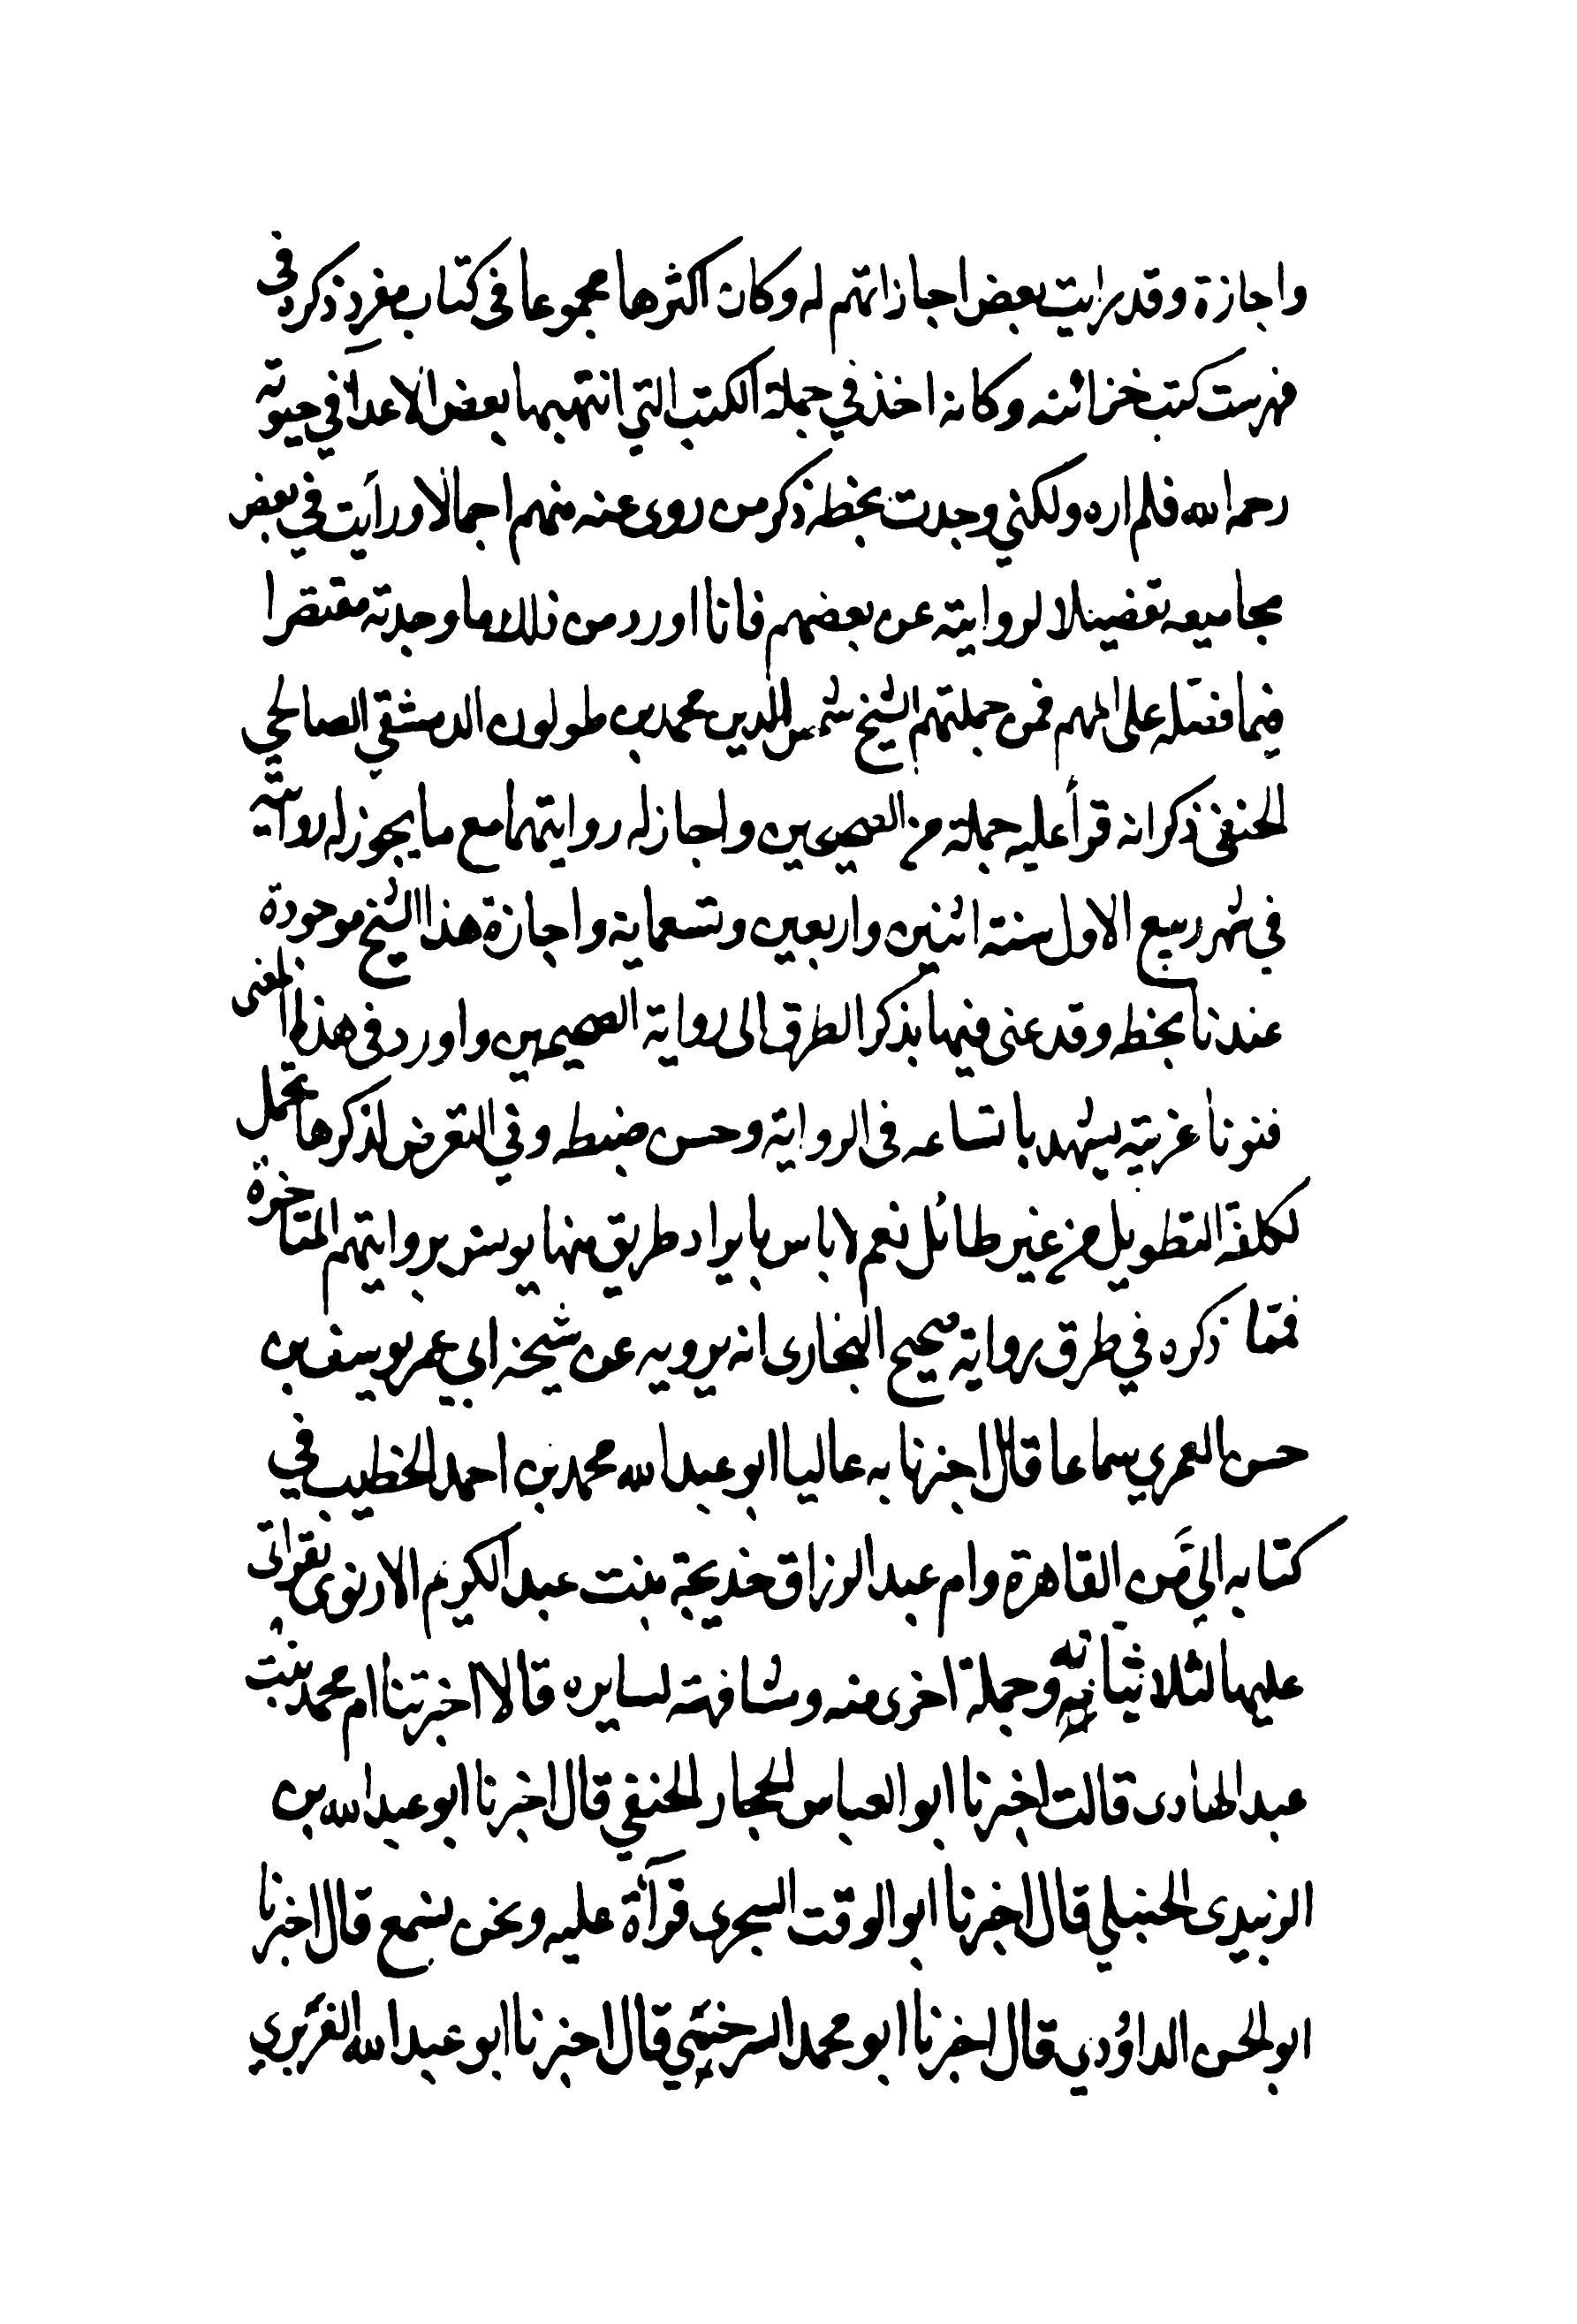 واجازة وقد رايت بعض اجازاتهم له وكان اكثرها مجموعا في كتاب مفرد ذكره في
فهرست كتب خزائنه وكانه اخذ في جملة الكتب التي انتهبها بعض الاعدآ في حيوته
رحمه الله فلم اره ولكني وجدت بخطه ذكر من روى عنه منهم اجمالا ورأيت في بعض
مجاميعه تفصيلا لروايته عن بعضهم فانا اورد من ذلك ما وجدته مقتصرا
فيما فصله على المهم فمن جملتهم الشيخ شمس الدين محمد بن طولون الدمشقي الصالحي
الحنفي ذكر انه قرأ عليه جملة من الصحيحين واجاز له روايتهما مع ما يجوز له روايته
في شهر ربيع الاول سنة اثنين واربعين وتسعماية واجازة هذا الشيخ موجودة
عندنا بخطه وقد عنى فيها بذكر الطرق الى رواية الصحيحين واورد في هذا المعنى
فنونا غريبة يشهد باتساعه في الرواية وحسن ضبطه وفي التعرض لذكرها تحمل
لكلفة التطويل من غير طائل نعم لا باس بايراد طريق منها يوسن بروايتهم المتاخرة
فمما ذكره في طرق رواية صحيح البخارى انه يرويه عن شيخه ابي عمر يوسف بن
حسن العمري سماعا قال اخبرنا به عاليا ابو عبد الله محمد بن احمد الخطيب في
كتابه الي من القاهرة وام عبد الرزاق خديجة بنت عبد الكريم الارنوى بقراتى
عليها لثلاثياته وجملة اخرى منه ومشافهة لسايره قالا اخبرتنا ام محمد بنت
عبد الهادى قالت اخبرنا ابو العباس الحجار الحنفي قال اخبرنا ابو عبد الله بن
الزبيدى الحنبلي قال اخبرنا ابو الوقت السجزى قرآءة عليه ونحن نسمع قال اخبرنا
ابو الحسن الداؤدي قال اخبرنا ابو محمد السرخسي قال اخبرنا ابو عبد الله الفربري